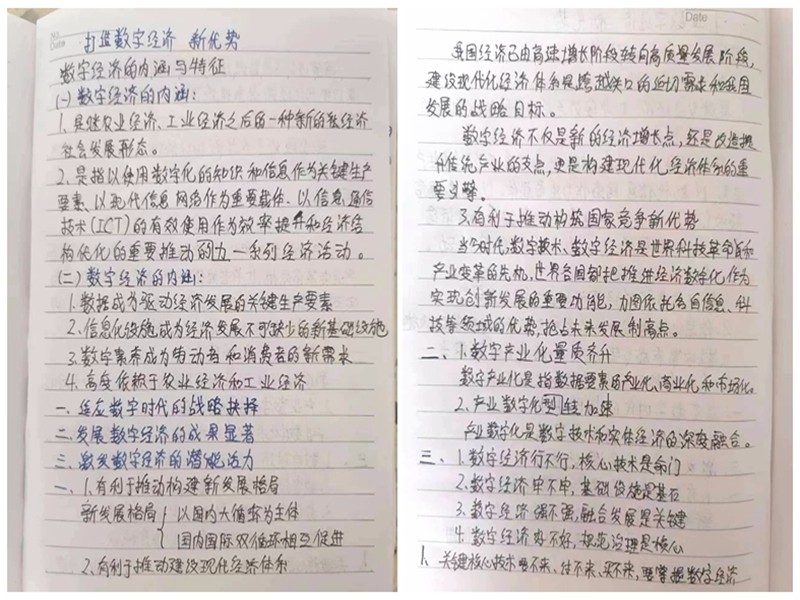 No.
Date
打造数字经济 新优势
数字经济的内涵与特征
(一)数字经济的内涵:
1.是继农业经济、工业经济之后的一种新的经济
社会发展形态。
2.是指以使用数字化的知识和信息作为关键生产
要素、以现代信息网络作为重要载体、以信息通信
技术(ICT)的有效使用作为效率提升和经济结
构优化的重要推动力的一系列经济活动。
(二)数字经济的内涵:
1.数据成为驱动经济发展的关键生产要素
2.信息化设施成为经济发展不可缺少的新基础设施
3.数字素养成为劳动者和消费者的新需求
4.高度依赖于农业经济和工业经济
一.适应数字时代的战略抉择
二.发展数字经济的成果显著
三.激发数字经济的潜能活力
一、1.有利于推动构建新发展格局
新发展格局 { 以国内大循环为主体
国内国际双循环相互促进
2.有利于推动建设现代化经济体系
Date
我国经济已由高速增长阶段转向高质量发展阶段,
建设现代化经济体系是跨越关口的迫切需求和我国
发展的战略目标。
数字经济不仅是新的经济增长点,还是改造提
升传统产业的支点,更是构建现代化经济体系的重
要引擎。
3.有利于推动构筑国家竞争新优势
当今时代,数字技术、数字经济是世界科技革命和
产业变革的先机,世界各国都把推进经济数字化作为
实现创新发展的重要动能,力图依托各自信息、科
技等领域的优势,抢占未来发展制高点。
二、1.数字产业化量质齐升
数字产业化是指数据要素的产业化、商业化和市场化。
2.产业数字化转型加速
产业数字化是数字技术和实体经济的深度融合。
三、1.数字经济行不行,核心技术是命门
2.数字经济牢不牢,基础设施是基石
3.数字经济强不强,融合发展是关键
4.数字经济好不好,规范治理是核心
1.关键核心技术要不来、讨不来、买不来,要掌握数字经济